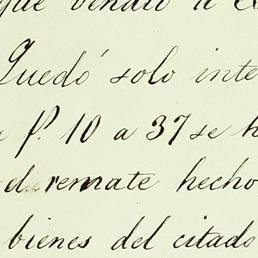 que vendió a
Quedó solo inte
f.º 10 a 37 se h
de remate hecho
bienes del citado